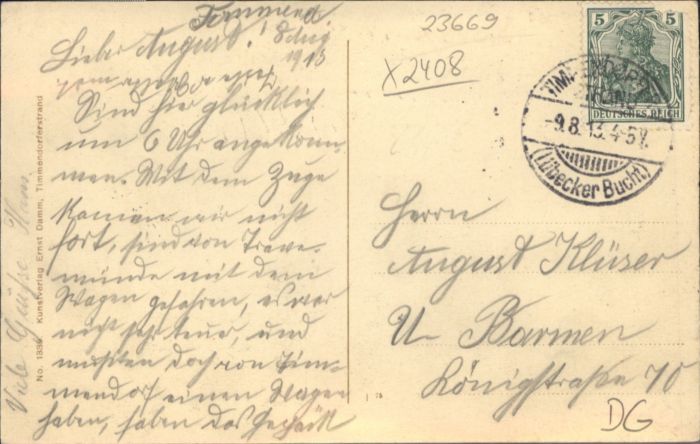 Timmend
8 Aug
1913
Lieber August!
Sind hier glücklich
um 6 Uhr angekom-
men. Mit dem Zuge
kamen wir nicht
fort, sind von Trave-
münde mit dem
Wagen gefahren, es war
nicht sehr teuer, und
mußten doch von Tim-
mendorf einen Wagen
haben, haben das Gepäck
Viele Grüße Hans
No. 1339 Kunstverlag Ernst Damm, Timmendorferstrand
23669
X2408
5 5
DEUTSCHES REICH
TIMMENDORFER
STRAND
-9.8.13.4-5V.
(Lübecker Bucht)
Herrn
August Klüser
U Barmen
Königstraße 70
DG